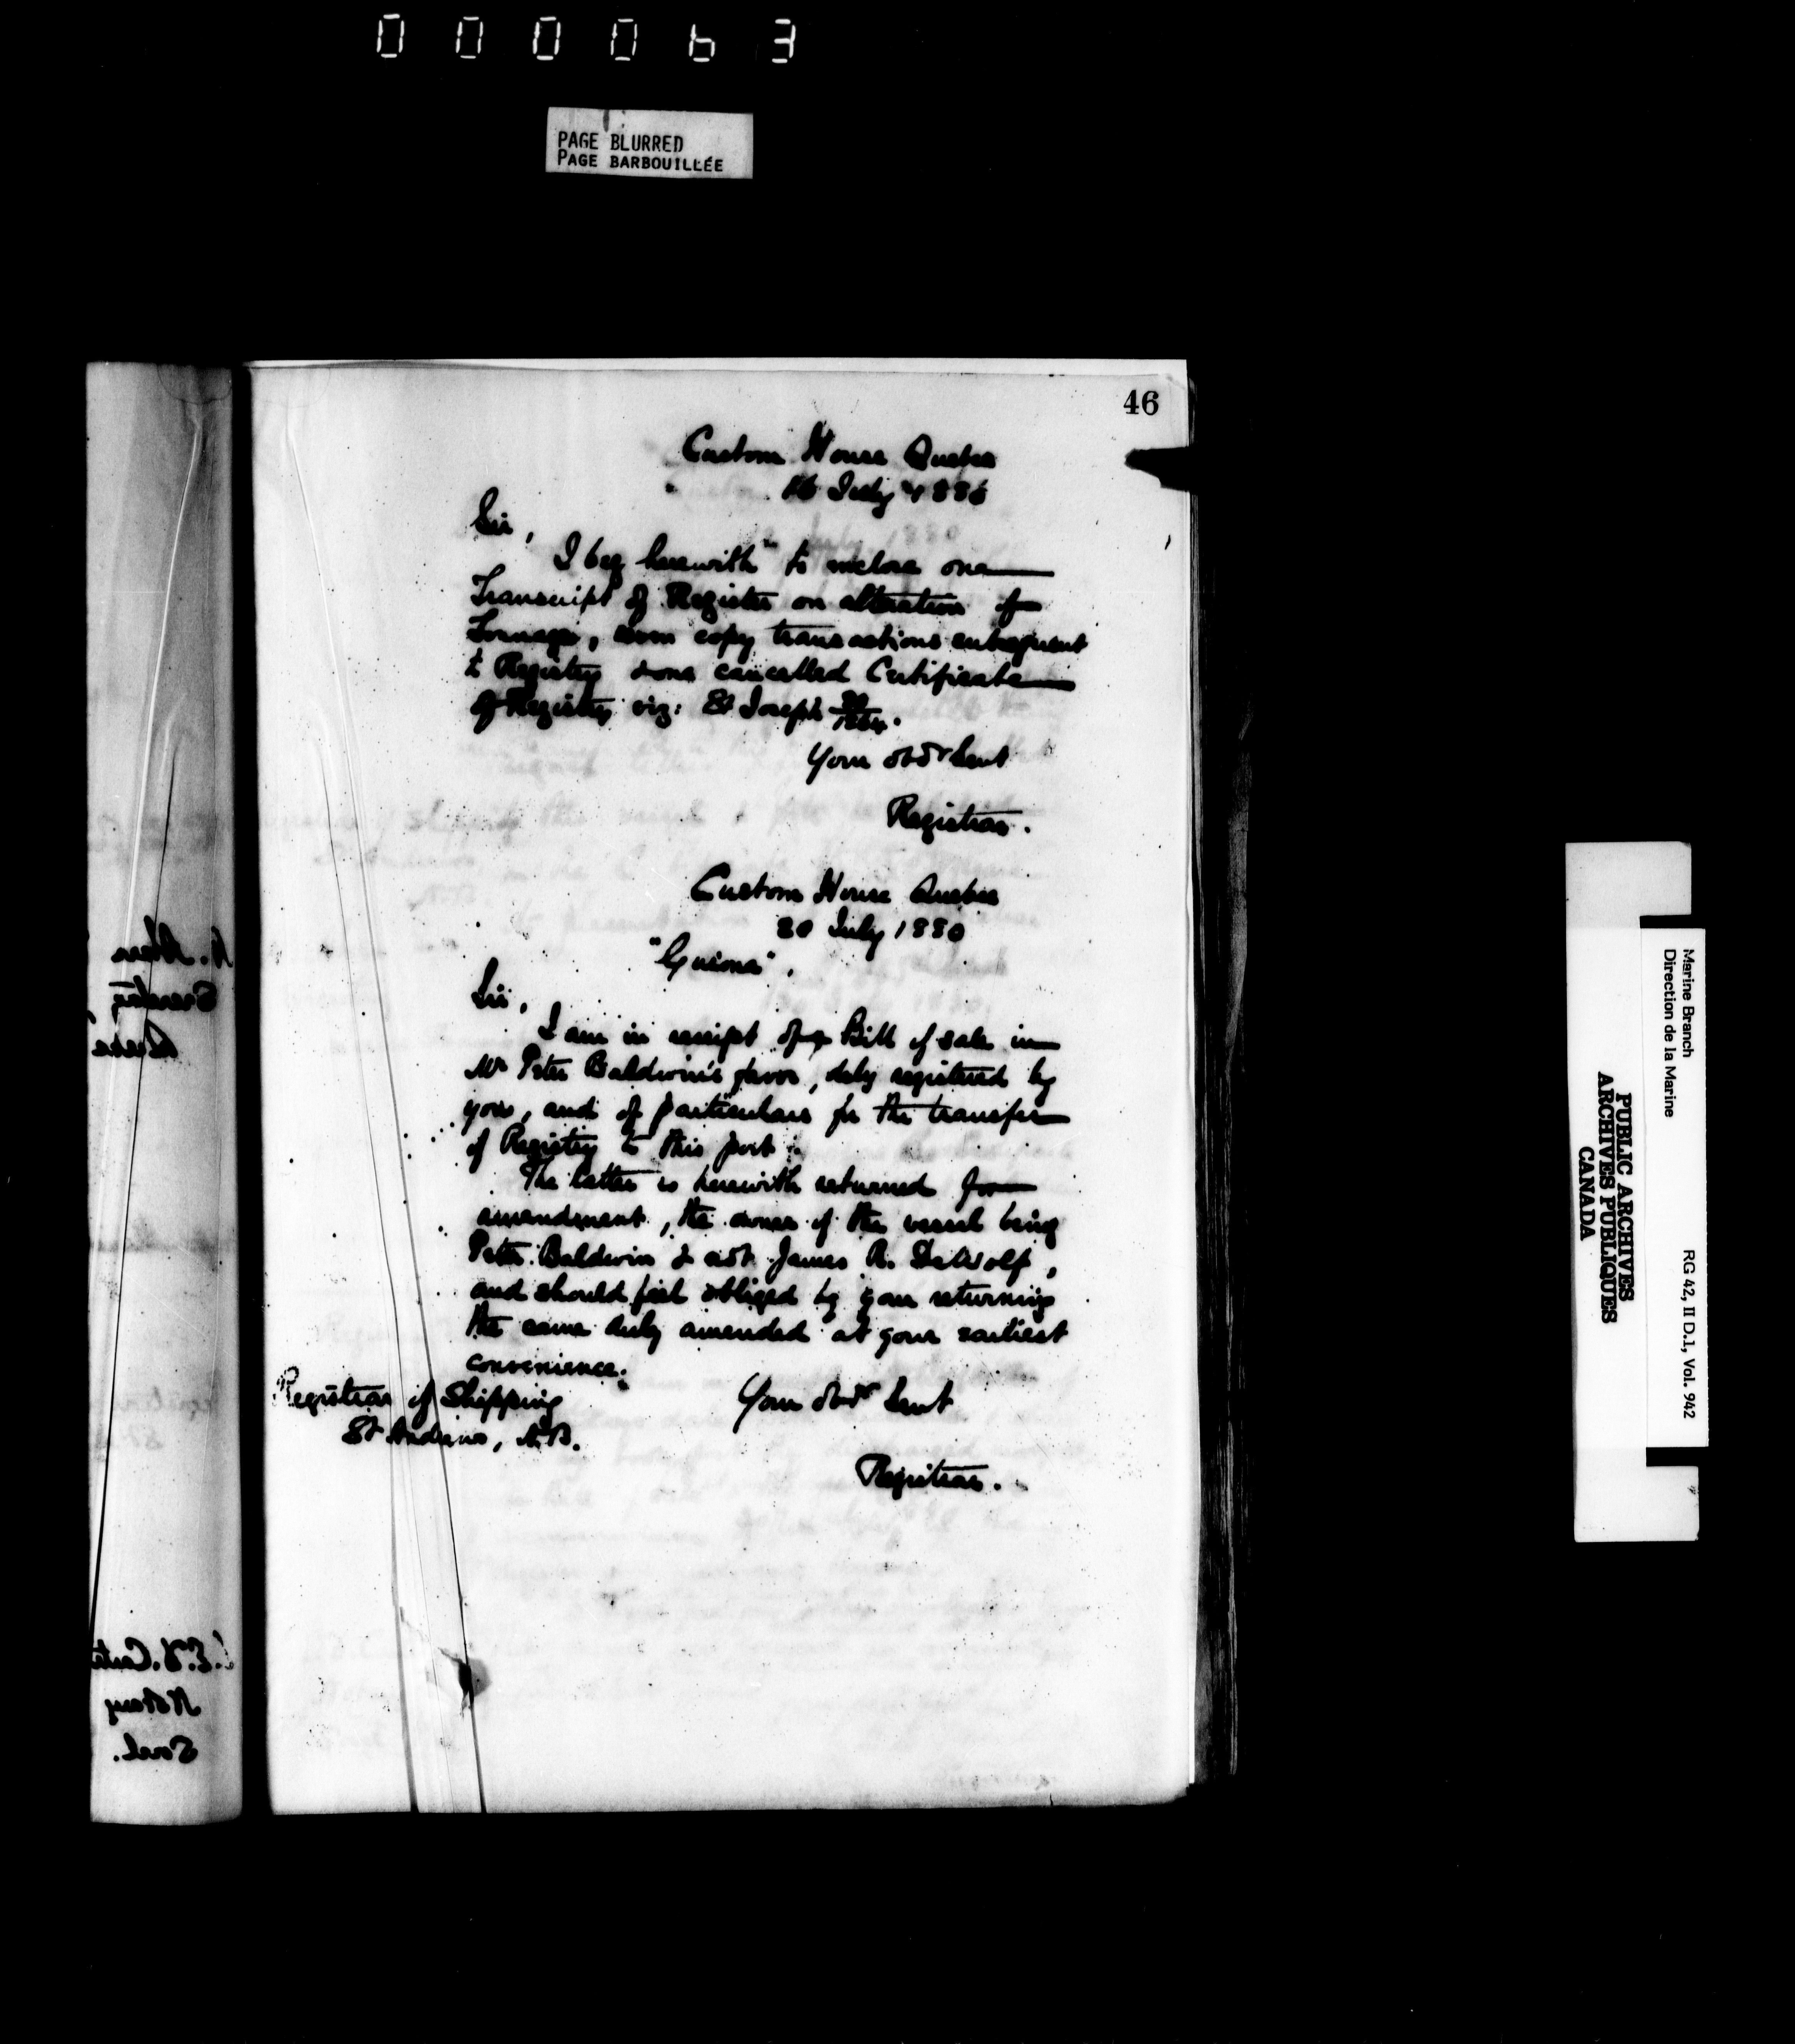 000063
PAGE BLURRED
PAGE BARBOUILLÉE
46
Custom House Quebec
16 July 1880
Sir,
I beg herewith to inclose one
Transcript of Register on alteration of
Tonnage, copy transactions subsequent
to Registry & one cancelled Certificate
of Registry viz: St Joseph
Your obdt Servt
Registrar.
Custom House Quebec
20 July 1880
Sir,
I am in receipt of a Bill of sale in
Mr Peter Baldwin's favor, duly registered by
you, and of particulars for the transfer
of Registry to this port.
The latter is herewith returned for
amendment, the owner of the vessel being
Peter Baldwin & not James R. DeWolf,
and should feel obliged by your returning
the same duly amended at your earliest
convenience.
Your obdt Servt
Registrar of Shipping
St Andrews, N.B.
Registrar.
Notary
Sorel.
Marine Branch
Direction de la Marine
RG 42, II D.1, Vol. 942
PUBLIC ARCHIVES
ARCHIVES PUBLIQUES
CANADA